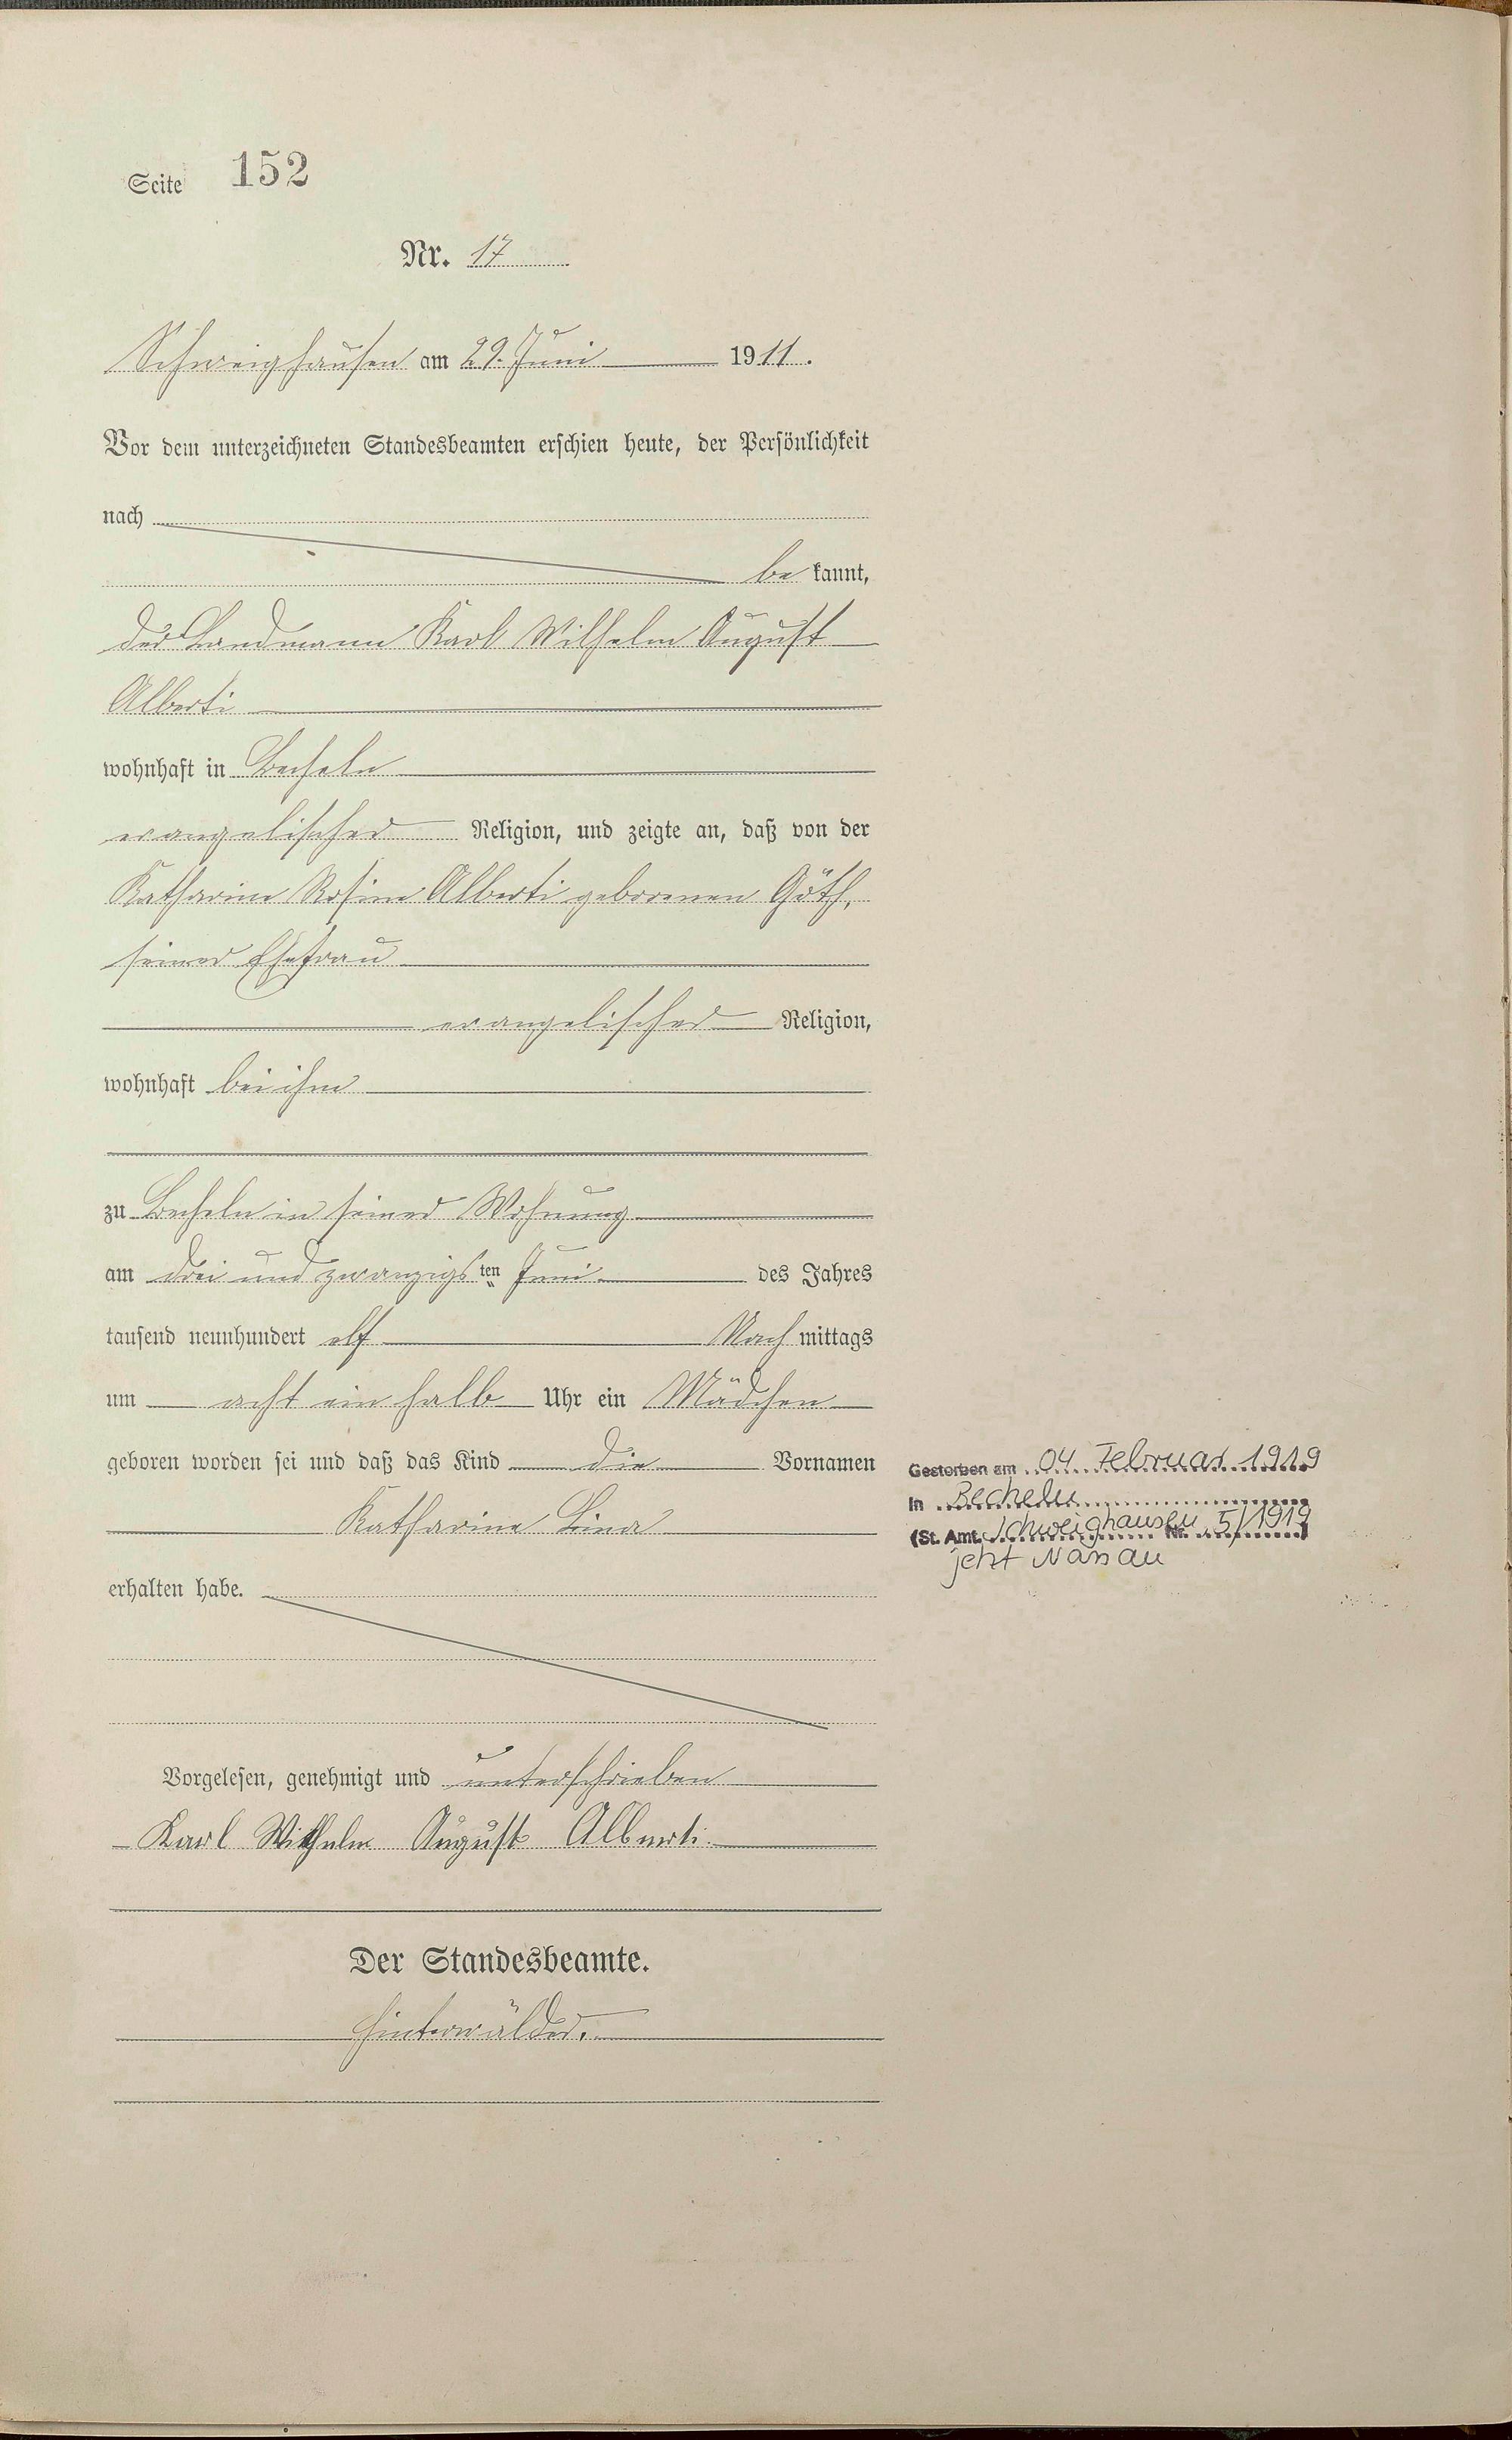 Seite 152
Nr. 17
Schweighausen am 29. Juni 1911.
Vor dem unterzeichneten Standesbeamten erschien heute, der Persönlichkeit
nach
be kannt,
der Landmann Karl Wilhelm August
Alberti
wohnhaft in Becheln
evangelischer Religion, und zeigte an, daß von der
Katharine Rosine Alberti geborenen Göth,
seiner Ehefrau
evangelischer Religion,
wohnhaft bei ihm
zu Becheln in seiner Wohnung
am drei und zwanzigsten Juni des Jahres
tausend neunhundert elf Nach mittags
um acht ein halb Uhr ein Mädchen
geboren worden sei und daß das Kind die Vornamen
Katharine Lina
erhalten habe.
Vorgelesen, genehmigt und unterschrieben
Karl Wilhelm August Alberti.
Der Standesbeamte.
Hinterwälder.
Gestorben am 04. Februar 1919
in Becheln
(St. Amt Schweighausen Nr. 5/1919)
jetzt Nassau